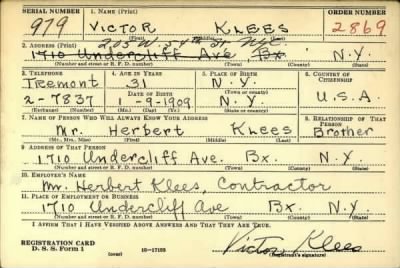 SERIAL NUMBER 1. NAME (Print) ORDER NUMBER
979 VICTOR KLEES 2869
(First) (Middle) (Last)
2. ADDRESS (Print) 203 W. 54th ST N.Y.C.
1710 Undercliff Ave Bx. N.Y.
(Number and street or R. F. D. number) (Town) (County) (State)
3. TELEPHONE 4. AGE IN YEARS 5. PLACE OF BIRTH 6. COUNTRY OF CITIZENSHIP
Tremont 31 N.Y.
DATE OF BIRTH (Town or county)
2-7837 1-9-1909 N.Y. U.S.A.
(Exchange) (Number) (Mo.) (Day) (Yr.) (State or country)
7. NAME OF PERSON WHO WILL ALWAYS KNOW YOUR ADDRESS 8. RELATIONSHIP OF THAT PERSON
Mr. Herbert Klees Brother
(Mr., Mrs., Miss) (First) (Middle) (Last)
9. ADDRESS OF THAT PERSON
1710 Undercliff Ave. Bx. N.Y.
(Number and street or R. F. D. number) (Town) (County) (State)
10. EMPLOYER'S NAME
Mr. Herbert Klees, Contractor
11. PLACE OF EMPLOYMENT OR BUSINESS
1710 Undercliff Ave Bx N.Y.
(Number and street or R. F. D. number) (Town) (County) (State)
I AFFIRM THAT I HAVE VERIFIED ABOVE ANSWERS AND THAT THEY ARE TRUE.
REGISTRATION CARD
D. S. S. Form 1 (over) 16-17105 Victor Klees
(Registrant's signature)